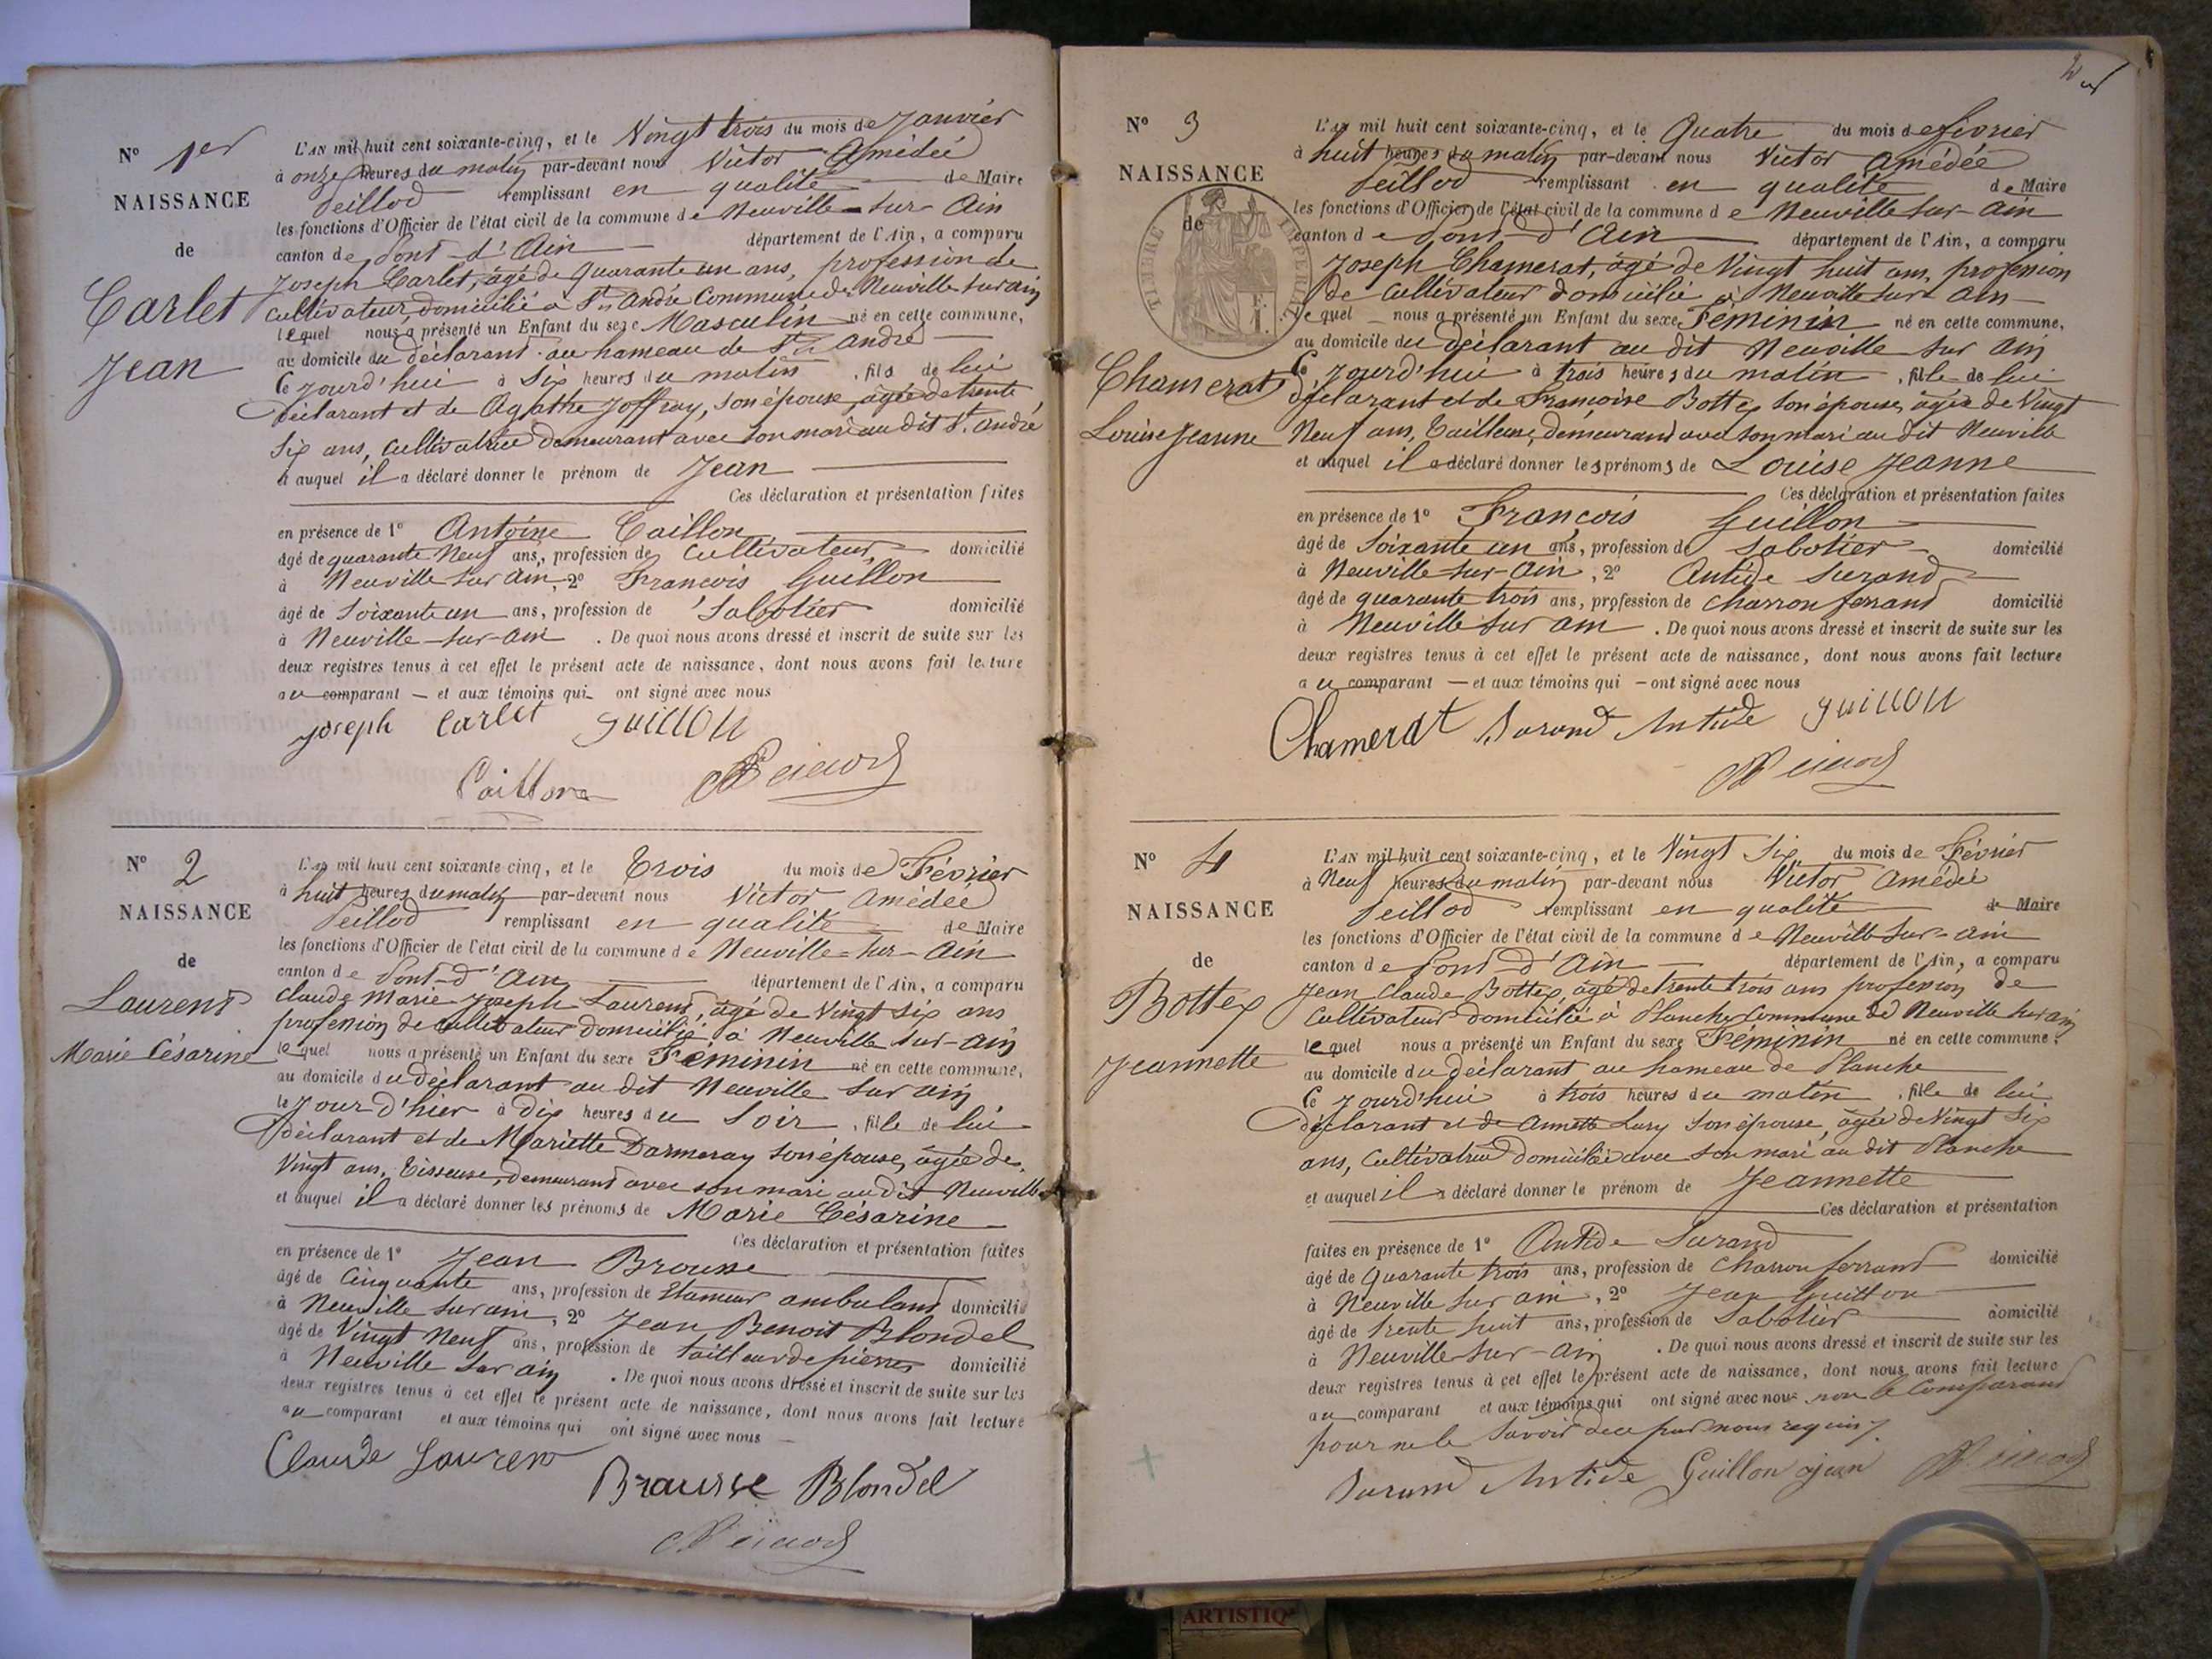 N° 1er
NAISSANCE
de
Carlet
Jean
L'AN mil huit cent soixante-cinq, et le Vingt trois du mois de Janvier
à onze heures du matin par-devant nous Victor Amédée
Peillod remplissant en qualité de Maire
les fonctions d'Officier de l'état civil de la commune de Neuville-sur-Ain
canton de Pont-d'Ain département de l'Ain, a comparu
Joseph Carlet, âgé de quarante un ans, profession de
cultivateur, domicilié à St André Commune de Neuville sur ain
lequel nous a présenté un Enfant du sexe Masculin né en cette commune,
au domicile du déclarant au hameau de St André
Ce jourd'hui à Six heures du matin, fils de lui
déclarant et de Agathe Joffray, son épouse, âgée de trente
Six ans, cultivatrice demeurant avec son mari au dit St. André
et auquel il a déclaré donner le prénom de Jean
Ces déclaration et présentation faites
en présence de 1° Antoine Caillon
âgé de quarante Neuf ans, profession de Cultivateur domicilié
à Neuville sur Ain, 2° Francois Guillon
âgé de Soixante un ans, profession de Sabotier domicilié
à Neuville-sur-ain. De quoi nous avons dressé et inscrit de suite sur les
deux registres tenus à cet effet le présent acte de naissance, dont nous avons fait lecture
au comparant et aux témoins qui ont signé avec nous
Joseph Carlet Guillon
Caillon Peillod
N° 2
NAISSANCE
de
Laurent
Marie Césarine
L'AN mil huit cent soixante cinq, et le Trois du mois de Février
à huit heures du matin par-devant nous Victor Amédée
Peillod remplissant en qualité de Maire
les fonctions d'Officier de l'état civil de la commune de Neuville-sur-Ain
canton de Pont-d'Ain département de l'Ain, a comparu
Claude Marie Joseph Laurent, âgé de Vingt six ans
profession de cultivateur domicilié à Neuville sur-ain
lequel nous a présenté un Enfant du sexe Féminin né en cette commune,
au domicile du déclarant au dit Neuville sur ain
le jour d'hier à dix heures du Soir, fille de lui
déclarant et de Mariette Darmeray son épouse, âgée de
Vingt ans, Tisseuse, demeurant avec son mari au dit Neuville
et auquel il a déclaré donner les prénoms de Marie Césarine
Ces déclaration et présentation faites
en présence de 1° Jean Brousse
âgé de Cinquante ans, profession de Etameur ambulant domicilié
à Neuville sur ain, 2° Jean Benoit Blondel
âgé de Vingt Neuf ans, profession de tailleur de pierres domicilié
à Neuville sur ain. De quoi nous avons dressé et inscrit de suite sur les
deux registres tenus à cet effet le présent acte de naissance, dont nous avons fait lecture
au comparant et aux témoins qui ont signé avec nous
Claude Lauren
Brousse Blondel
Peillod
N° 3
NAISSANCE
de
TIMBRE IMPERIAL
Chamerat
Louise Jeanne
L'AN mil huit cent soixante-cinq, et le Quatre du mois de février
à huit heures du matin par-devant nous Victor Amédée
Peillod remplissant en qualité de Maire
les fonctions d'Officier de l'état civil de la commune de Neuville sur-ain
canton de Pont-d'Ain département de l'Ain, a comparu
Joseph Chamerat, âgé de Vingt huit ans, profession
de Cultivateur domicilié à Neuville sur ain
lequel nous a présenté un Enfant du sexe Féminin né en cette commune,
au domicile du déclarant au dit Neuville sur ain
Ce jourd'hui à trois heures du matin, fille de lui
déclarant et de Francoise Bottex son épouse, âgée de Vingt
Neuf ans, Tailleuse, demeurant avec son mari au dit Neuville
et auquel il a déclaré donner les prénoms de Louise Jeanne
Ces déclaration et présentation faites
en présence de 1° Francois Guillon
âgé de Soixante un ans, profession de Sabotier domicilié
à Neuville-sur-Ain, 2° Antide Surand
âgé de quarante trois ans, profession de Charron ferrant domicilié
à Neuville sur ain. De quoi nous avons dressé et inscrit de suite sur les
deux registres tenus à cet effet le présent acte de naissance, dont nous avons fait lecture
au comparant et aux témoins qui ont signé avec nous
Chamerat Surand Antide Guillon
Peillod
N° 4
NAISSANCE
de
Bottex
Jeannette
L'AN mil huit cent soixante-cinq, et le Vingt Six du mois de Février
à Neuf heures du matin par-devant nous Victor Amédée
Peillod remplissant en qualité de Maire
les fonctions d'Officier de l'état civil de la commune de Neuville sur-ain
canton de Pont-d'Ain département de l'Ain, a comparu
Jean Claude Bottex, âgé de trente trois ans profession de
Cultivateur domicilié à Planche Commune de Neuville sur ain
lequel nous a présenté un Enfant du sexe Féminin né en cette commune,
au domicile du déclarant au hameau de Planche
Ce jourd'hui à trois heures du matin, fille de lui
déclarant et de Annette Lury son épouse, âgée de Vingt Six
ans, Cultivatrice domiciliée avec son mari au dit Planche
et auquel il a déclaré donner le prénom de Jeannette
Ces déclaration et présentation
faites en présence de 1° Antide Surand
âgé de Quarante trois ans, profession de Charron ferrant domicilié
à Neuville sur ain, 2° Jean Guillon
âgé de trente huit ans, profession de Sabotier domicilié
à Neuville-sur-ain. De quoi nous avons dressé et inscrit de suite sur les
deux registres tenus à cet effet le présent acte de naissance, dont nous avons fait lecture
au comparant et aux témoins qui ont signé avec nous non le Comparant
pour ne le Savoir de ce par nous requis
Surand Antide Guillon jean Peillod
ARTISTIQ